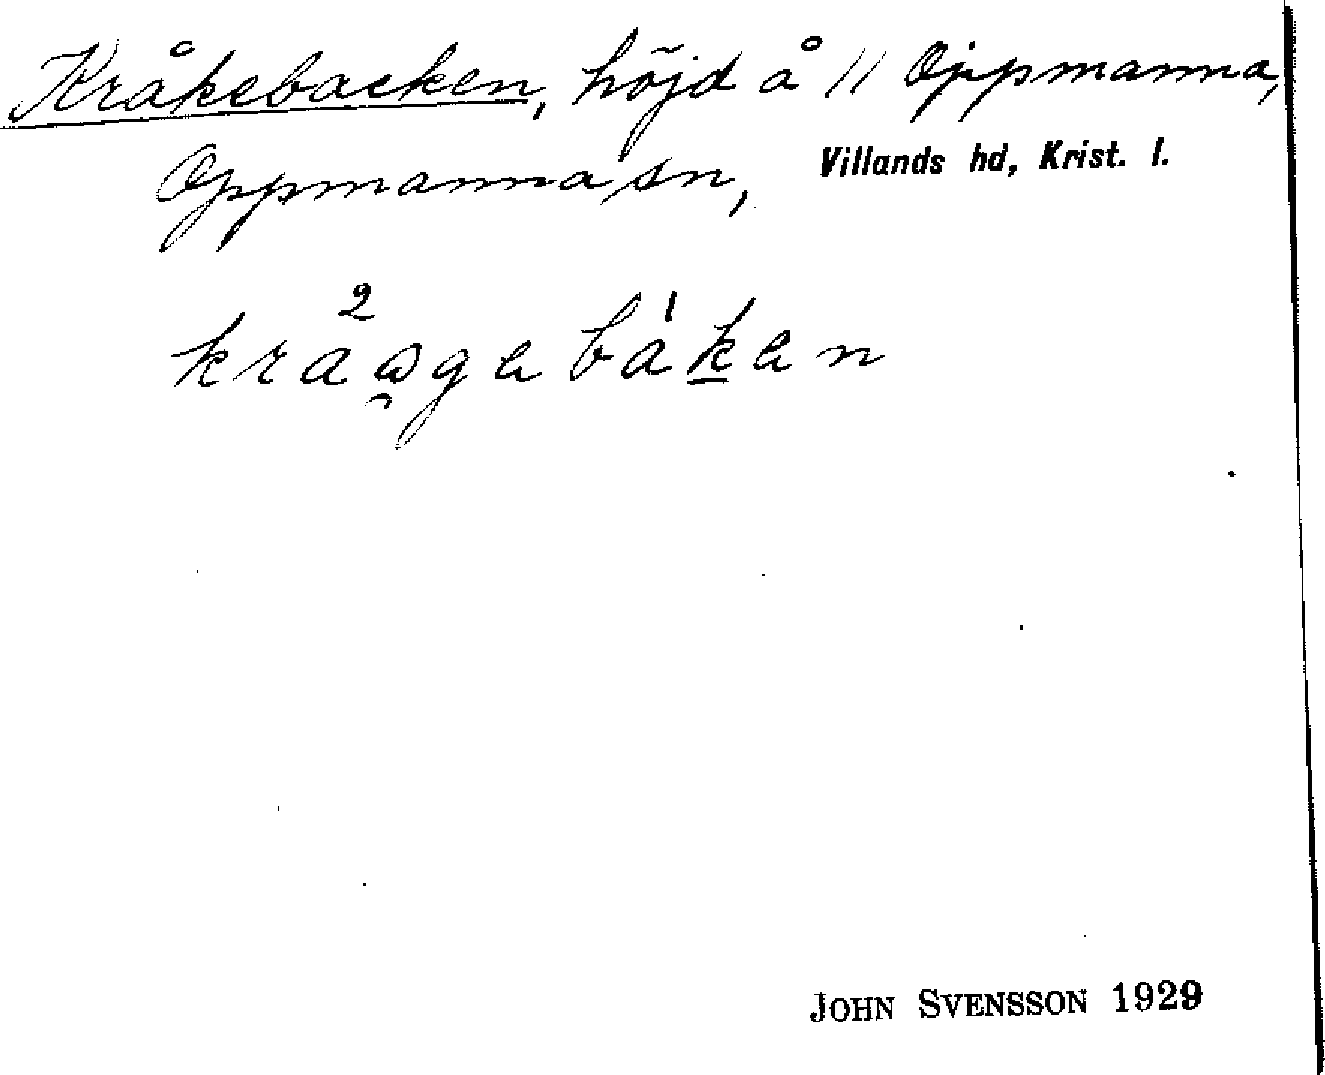 Kråkebacken, höjd å // Oppmanna,
Oppmanna sn, Villands hd, Krist. l.
2 1
kraωgebakan
JOHN SVENSSON 1929